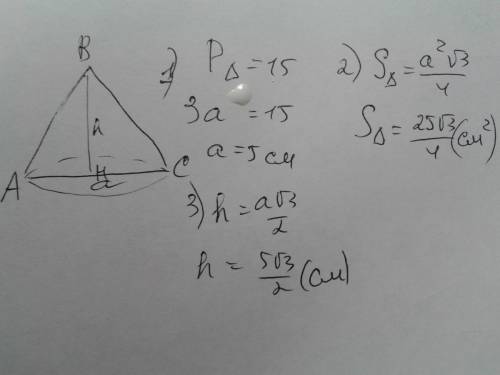 B
h
A
H
a
C
1) P△ = 15
3a = 15
a = 5 см
2) S△ = a²√3/4
S△ = 25√3/4 (см²)
3) h = a√3/2
h = 5√3/2 (см)